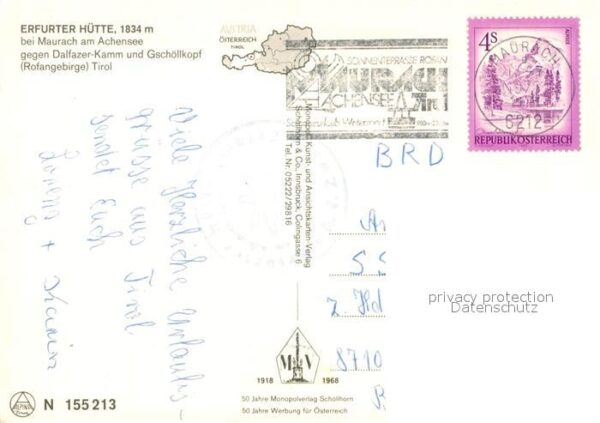 ERFURTER HÜTTE, 1834 m
bei Maurach am Achensee
gegen Dalfazer-Kamm und Gschöllkopf
(Rofangebirge) Tirol
AUSTRIA
ÖSTERREICH
TIROL
SONNENTERRASSE ROFAN
MAURACH
ACHENSEE
4S
REPUBLIK ÖSTERREICH
MAURACH
6212
Viele Herzliche Urlaubs-
grüsse aus Tirol
sendet Euch
Lorenz + Karin
Monopol Kunst- und Ansichtskarten-Verlag
Schöllhorn & Co., Innsbruck, Colingasse 6
Tel. Nr. 05222/29816
BRD
z. Hd
8710
privacy protection
Datenschutz
M V
1918 1968
50 Jahre Monopolverlag Schöllhorn
50 Jahre Werbung für Österreich
ALPINA
N 155213